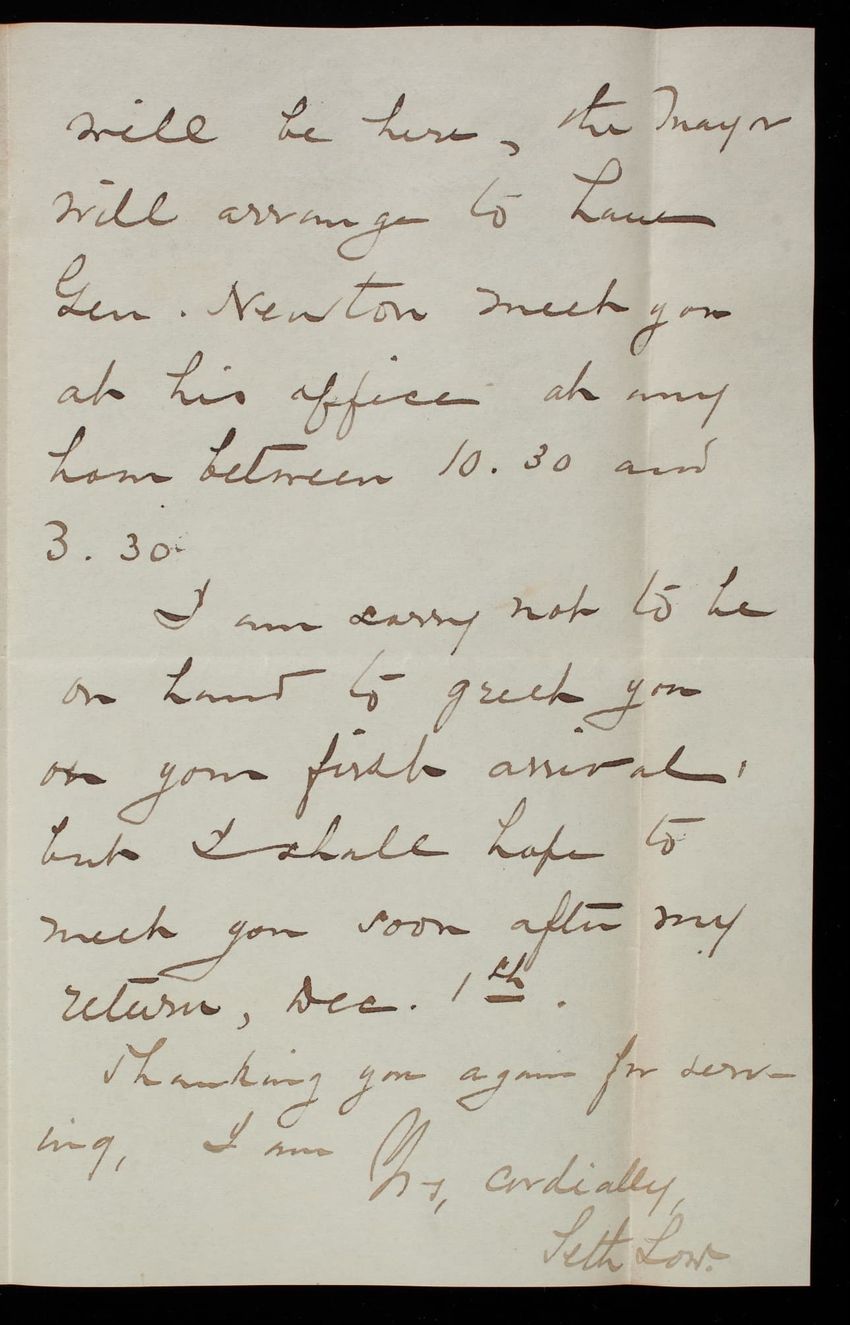 will be here, the Mayor
will arrange to have
Gen. Newton meet you
at his office at any
hour between 10.30 and
3.30.
I am sorry not to be
on hand to greet you
on your first arrival,
but I shall hope to
meet you soon after my
return, Dec. 1st.
Thanking you again for serv-
ing, I am
Yrs, cordially,
Seth Low.